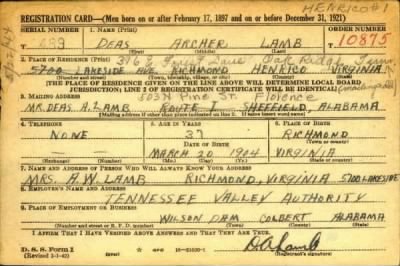 HENRICO #1
REGISTRATION CARD—(Men born on or after February 17, 1897 and on or before December 31, 1921)
SERIAL NUMBER 1. NAME (Print) ORDER NUMBER
DEAS ARCHER LAMB 10875
(First) (Middle) (Last)
2. PLACE OF RESIDENCE (Print)
Oak Ridge Tenn
5700 LAKESIDE AVE RICHMOND HENRICO VIRGINIA
(Number and street) (Town, township, village, or city) (County) (State)
[THE PLACE OF RESIDENCE GIVEN ON THE LINE ABOVE WILL DETERMINE LOCAL BOARD
JURISDICTION; LINE 2 OF REGISTRATION CERTIFICATE WILL BE IDENTICAL]
3. MAILING ADDRESS
Pine St. Florence
MR. DEAS A. LAMB ROUTE 1 SHEFFIELD, ALABAMA
[Mailing address if other than place indicated on line 2. If same insert word same]
4. TELEPHONE 5. AGE IN YEARS 6. PLACE OF BIRTH
NONE 37 RICHMOND
DATE OF BIRTH (Town or county)
MARCH 20 1904 VIRGINIA
(Exchange) (Number) (Mo.) (Day) (Yr.) (State or country)
7. NAME AND ADDRESS OF PERSON WHO WILL ALWAYS KNOW YOUR ADDRESS
MRS. A. W. LAMB RICHMOND, VIRGINIA 5700 LAKESIDE
8. EMPLOYER'S NAME AND ADDRESS
TENNESSEE VALLEY AUTHORITY
9. PLACE OF EMPLOYMENT OR BUSINESS
WILSON DAM COLBERT ALABAMA
(Number and street or R. F. D. number) (Town) (County) (State)
I AFFIRM THAT I HAVE VERIFIED ABOVE ANSWERS AND THAT THEY ARE TRUE.
D. S. S. Form 1
(Revised 2-1-42) (over)
D A Lamb